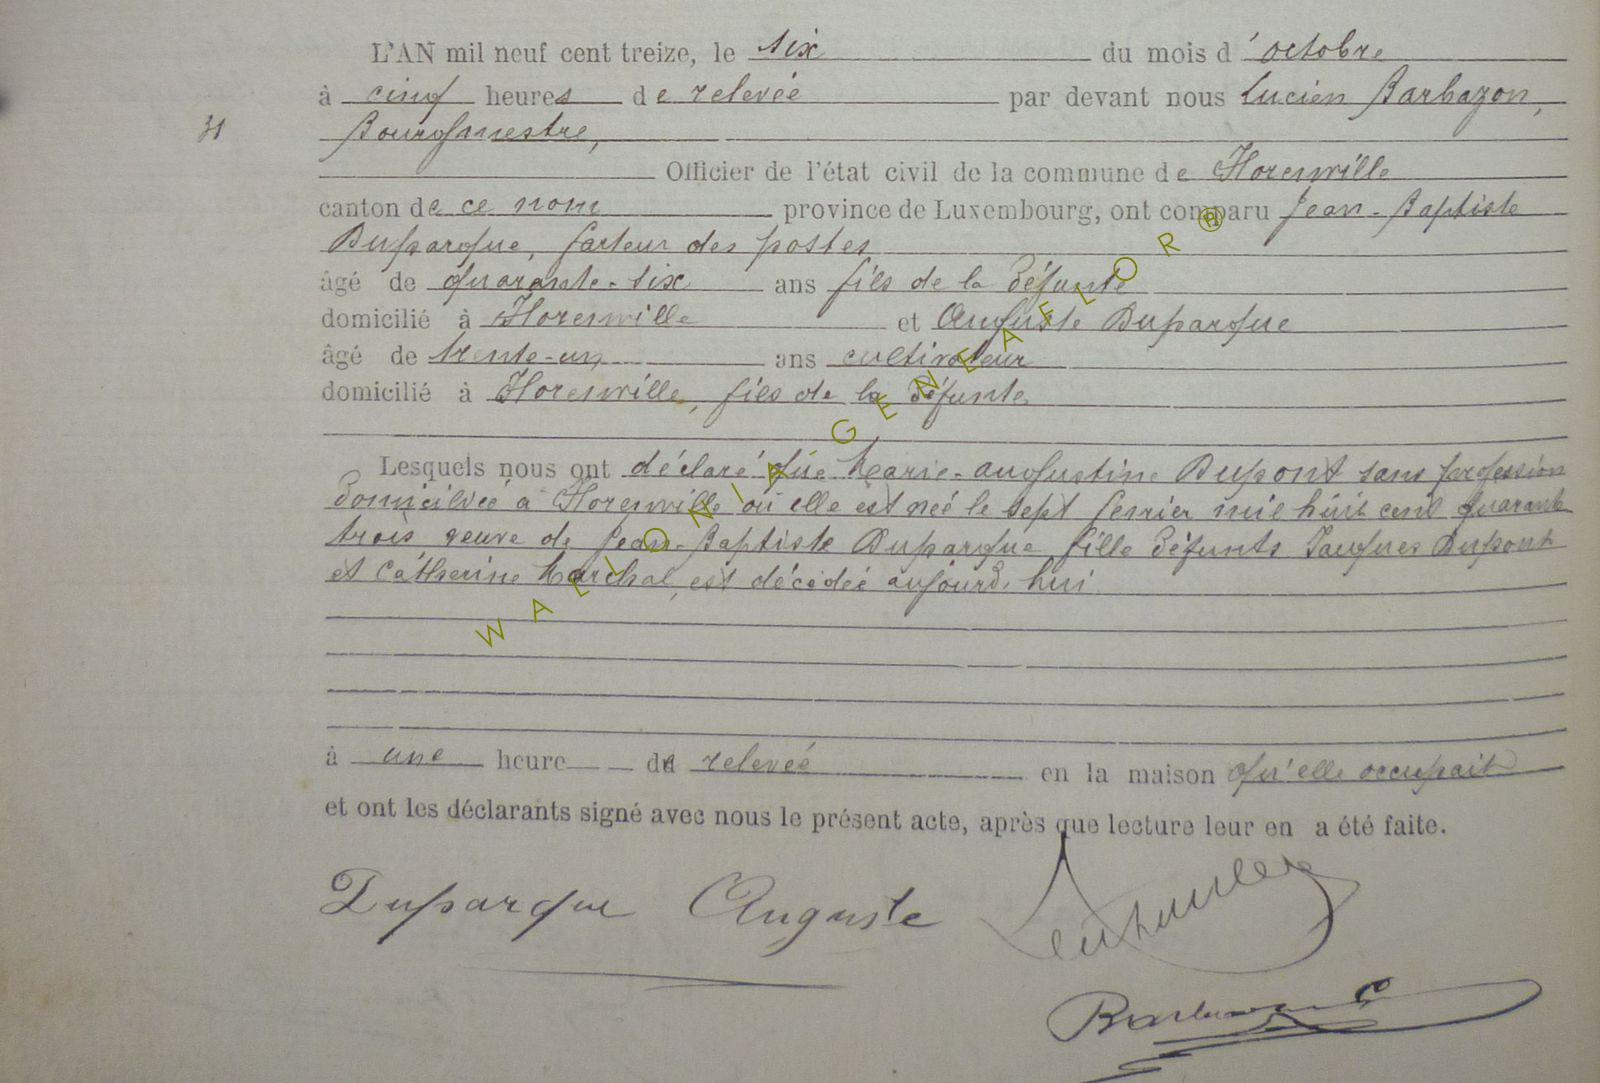 L'AN mil neuf cent treize, le six du mois d'octobre
à cinq heures de relevée par devant nous Lucien Barbazon,
31 Bourgmestre,
Officier de l'état civil de la commune de Florenville
canton de ce nom province de Luxembourg, ont comparu Jean-Baptiste
Duparque, facteur des postes
âgé de quarante-six ans fils de la défunte
domicilié à Florenville et Auguste Duparque
âgé de trente-un ans cultivateur
domicilié à Florenville, fils de la défunte
Lesquels nous ont déclaré que Marie-Augustine Dupont sans profession
domiciliée à Florenville où elle est née le sept février mil huit cent quarante
trois veuve de Jean-Baptiste Duparque fille défunts Jacques Dupont
et Catherine Marchal, est décédée aujourd'hui
à une heure de relevée en la maison qu'elle occupait
et ont les déclarants signé avec nous le présent acte, après que lecture leur en a été faite.
Duparque Auguste
WALLONIA GENEAFLOR ®